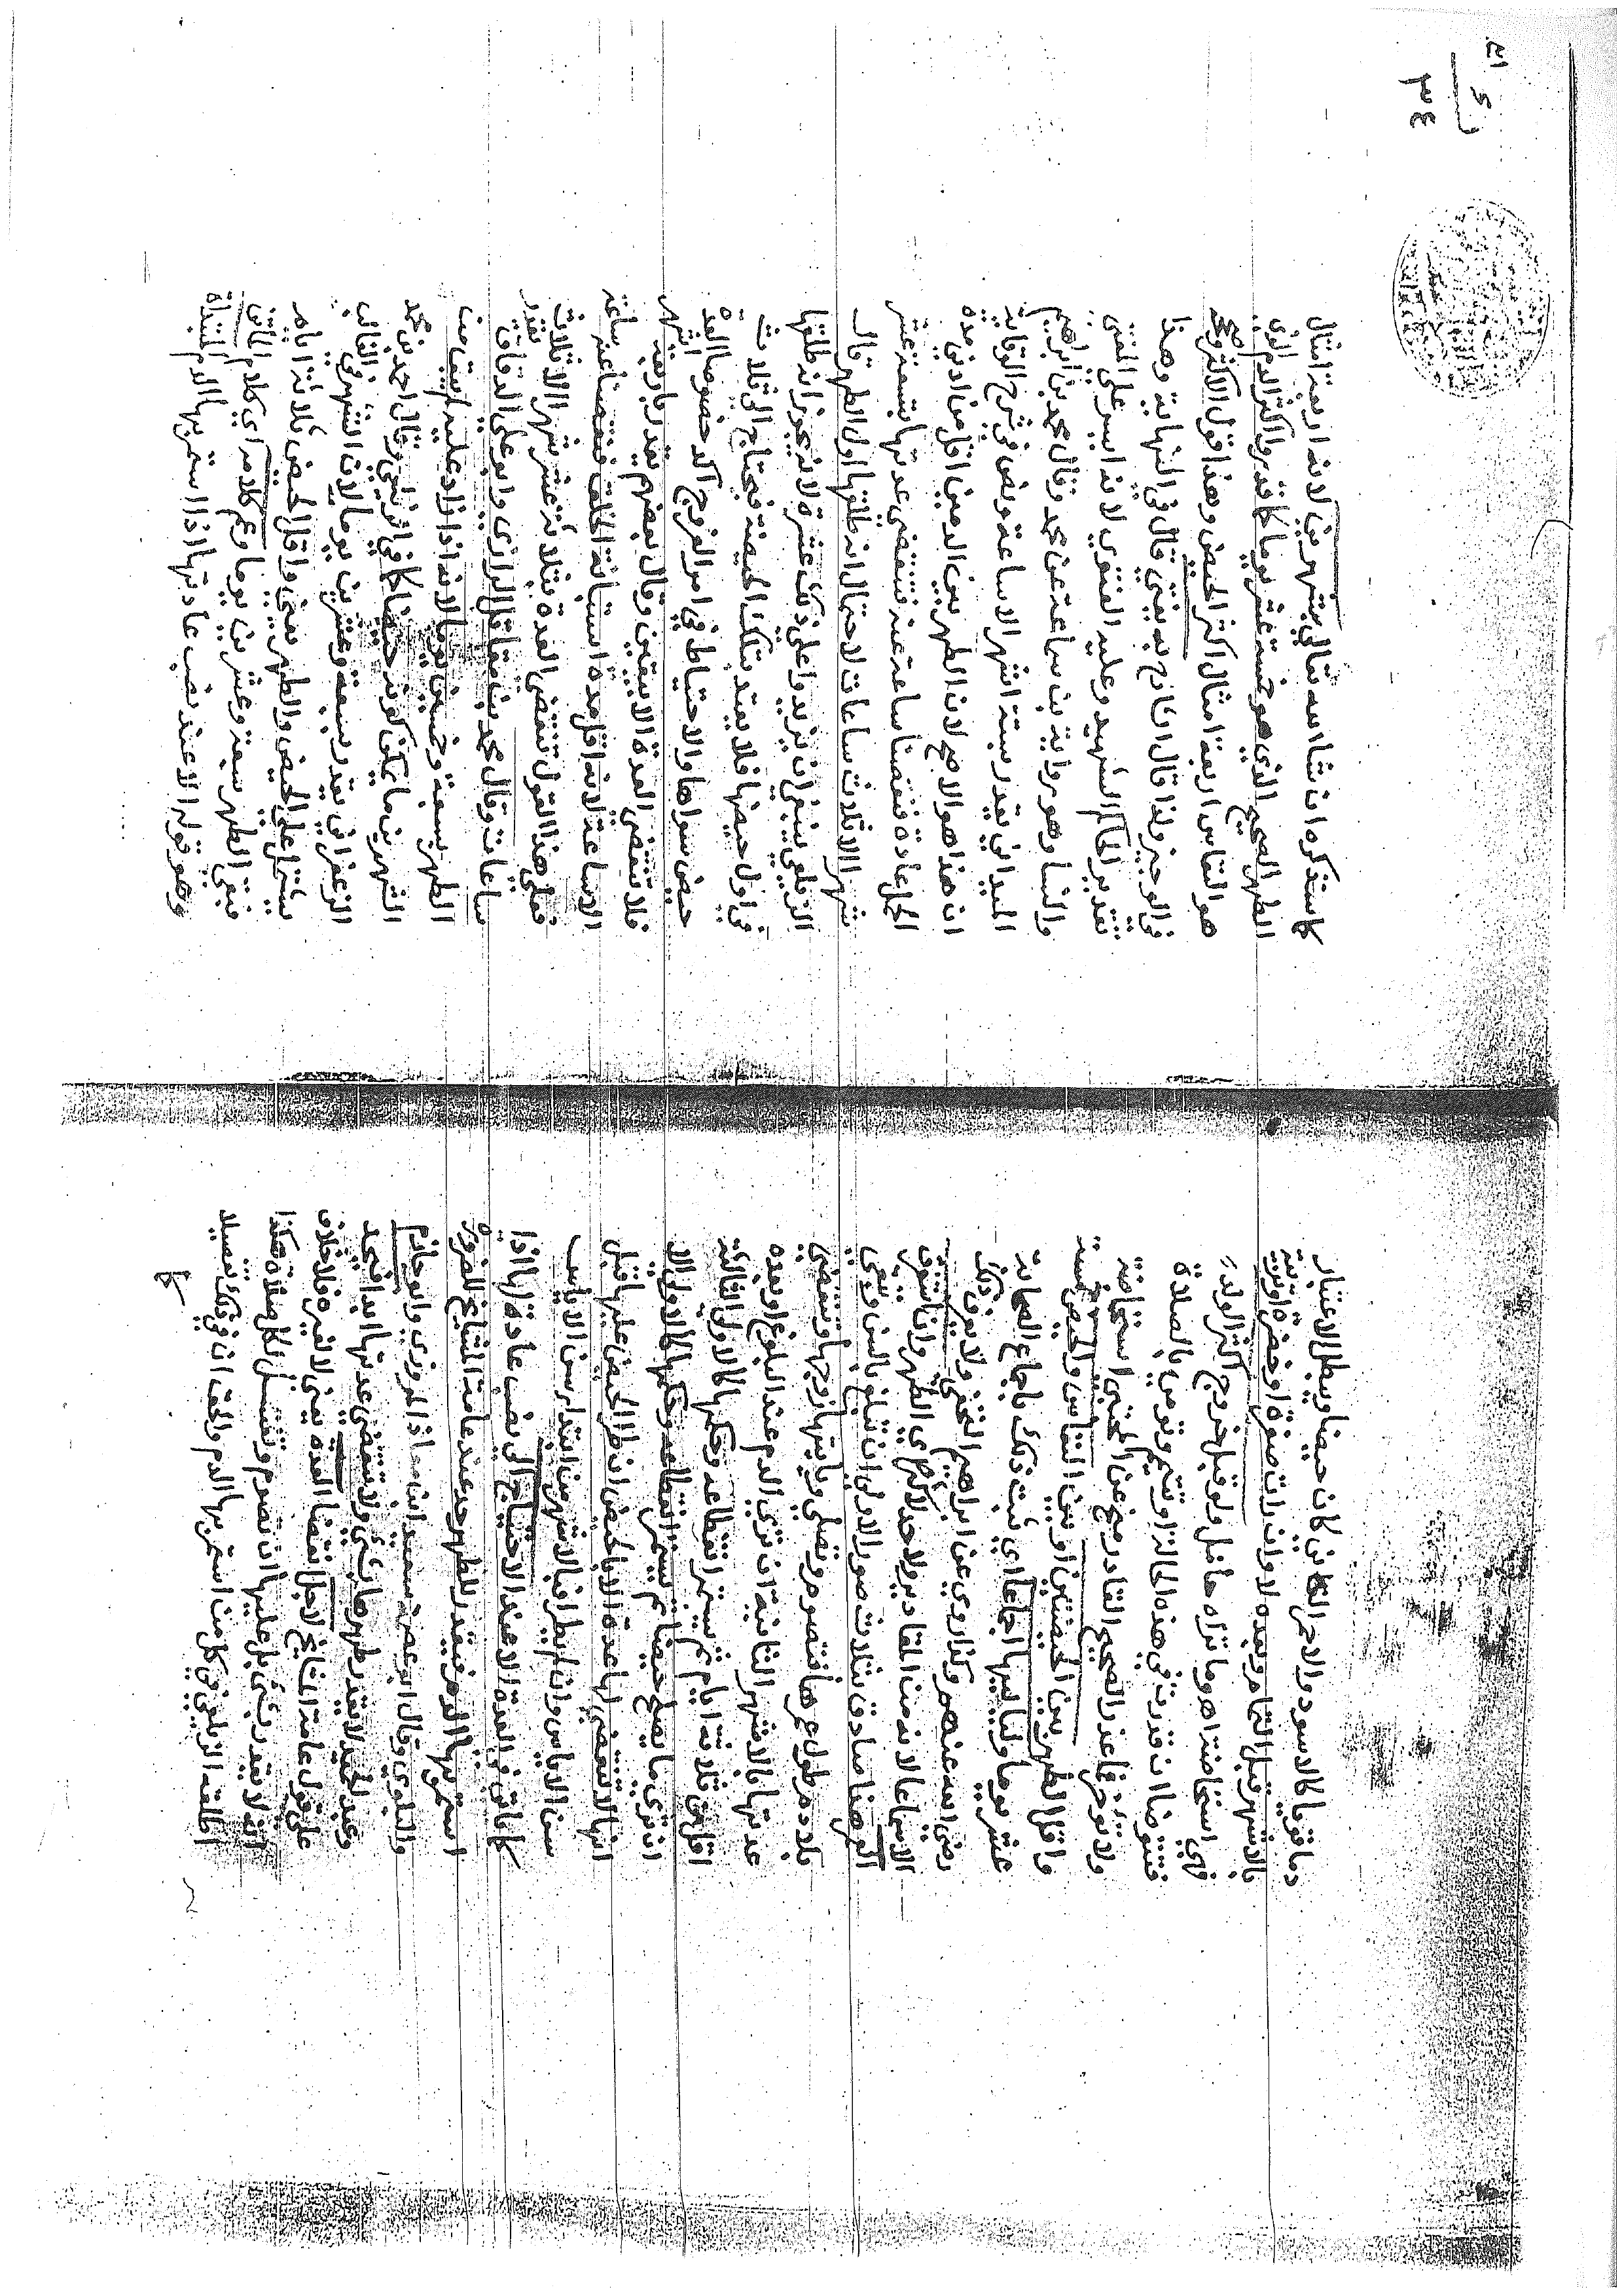 دما قويا كالاسود والاحمر القاني كان حيضا ويبطل الاعتبار
بالاشهر قبل التمام وبعده لا وان رات صفرة او خضرة او تربية
فهي استحاضة هو ما تراه حامل ولو قبل خروج اكثر الولد
فتتوضا ان قدرت في هذه الحالة او تتيمم وتومي بالصلاة
ولا تؤخر فما عذر الصحيح القادر منح عن المجتبى استحاضة
واقل الطهر بين الحيضتين او بين النفاس والحيض خمسة
عشر يوما ولياليها اجماعا اي ثبت ذلك باجماع الصحابة
رضي الله عنهم وكذا روي عن ابراهيم النخعي ولا يعرف ذلك
الا سماعا لانه من المقادير ولا حد لاكثره اي الطهر وان استغرق
العمر هنا صادق بثلاث صور الاولى ان تبلغ بالسن وتبقى
بلا دم طول عمرها فتصوم وتصلي وياتيها زوجها وتنقضي
عدتها بالاشهر الثانية ان ترى الدم عند البلوغ او بعده
اقل من ثلاثة ايام ثم يستمر انقطاعه وحكمها كالاولى الثالثة
ان ترى ما يصلح حيضا ثم يستمر انقطاعه وحكمها كالاولى الا
انها لا تنقضي لها عدة الا بالحيض ان طرا الحيض عليها قبل
سن الاياس وان لم يطرا فبالاشهر من ابتداء سن الاياس
كما ياتي في العدة الا عند الاحتياج الى نصب عادة لها اذا
استمر بها الدم فيقدر للطهر حد عند عامة المشايخ للضرورة
والبلوى وقال ابو عصمة سعيد ابن معاذ المروزي وابو حازم
وعبد الحميد لا يقدر طهرها بشيء ولا تنقضي عدتها ابدا فيحد
على قول عامة المشايخ لاجل انقضا العدة يعني لا لغيره فلا خلاف
انه لا يقدر بشيء بل عليها ان تصوم وتغتسل لكل صلاة هكذا
اطلقه الزيلعي في كل من استمر بها الدم والحق ان في ذلك تفصيلا
كما
٣٤
كما ستذكره ان شا الله تعالى بشهرين لانه اربعة امثال
الطهر الصحيح الذي هو خمسة عشر يوما كما قدروا اكثر الدم الذي
هو النفاس اربعة امثال اكثر الحيض وهذا قول الاكثر وصححه
في الوجيز ولذا قال الشارح به يفتى قال في النهاية وهذا
تقدير الحاكم الشهيد وعليه الفتوى لانه ايسر على المفتي
والنسا وهو رواية بن سماعة عن محمد وقال محمد بن ابراهيم
الميداني يقدر بستة اشهر الا ساعة ونص في شرح الوقاية
ان هذا هو الاصح لان الطهر بين الدمين اقل من ادنى مدة
الحمل عادة فنقصنا ساعة عنه فتنقضي عدتها بتسعة عشر
شهرا الا ثلاث ساعات لاحتمال انه طلقها اول الطهر قال
الزيلعي ينبغي ان يزيد واعلى ذلك عشرة لانه يجوز انه طلقها
في اول حيضها فلا يعتد بتلك الحيضة فيحتاج الى ثلاث
حيض سواها والاحتياط في امر الفروج اكد خصوصا العدة
فلا تنقضي العدة الا بيقين وقال بعضهم يقدر باربعة اشهر
الا ساعة لانه اقل مدة استبانة الخلق فنقصنا عنه ساعة
فعلى هذا القول تنقضي العدة بثلاثة عشر شهرا الا ثلاث
ساعات وقال محمد بن مقاتل الرازي وابو علي الدقاق يقدر
الطهر بسبعة وخمسين يوما لانه اذا زاد عليه لم يبق من
الشهرين ما يمكن كونه حيضا كما في الزيلعي وقال احمد بن محمد
الزعفراني يقدر بسبعة وعشرين يوما لان الشهر في الغالب
يشتمل على الحيض والطهر يعني واقل الحيض ثلاثة ايام
فبقي الطهر سبعة وعشرين يوما وعم كلامه اي كلام الماتن
وهو قوله الا عند نصب عادتها اذا استمر بها الدم المبتداة